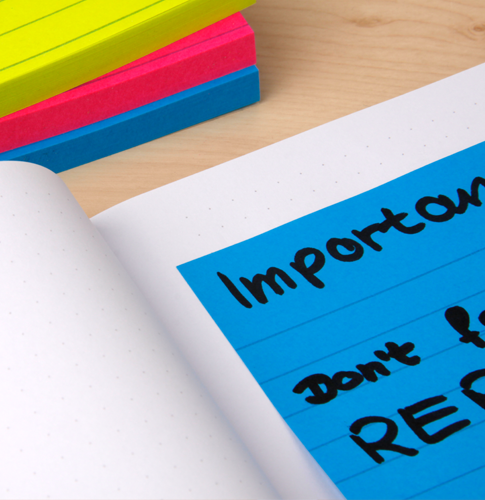 Importan
Don't f
RE